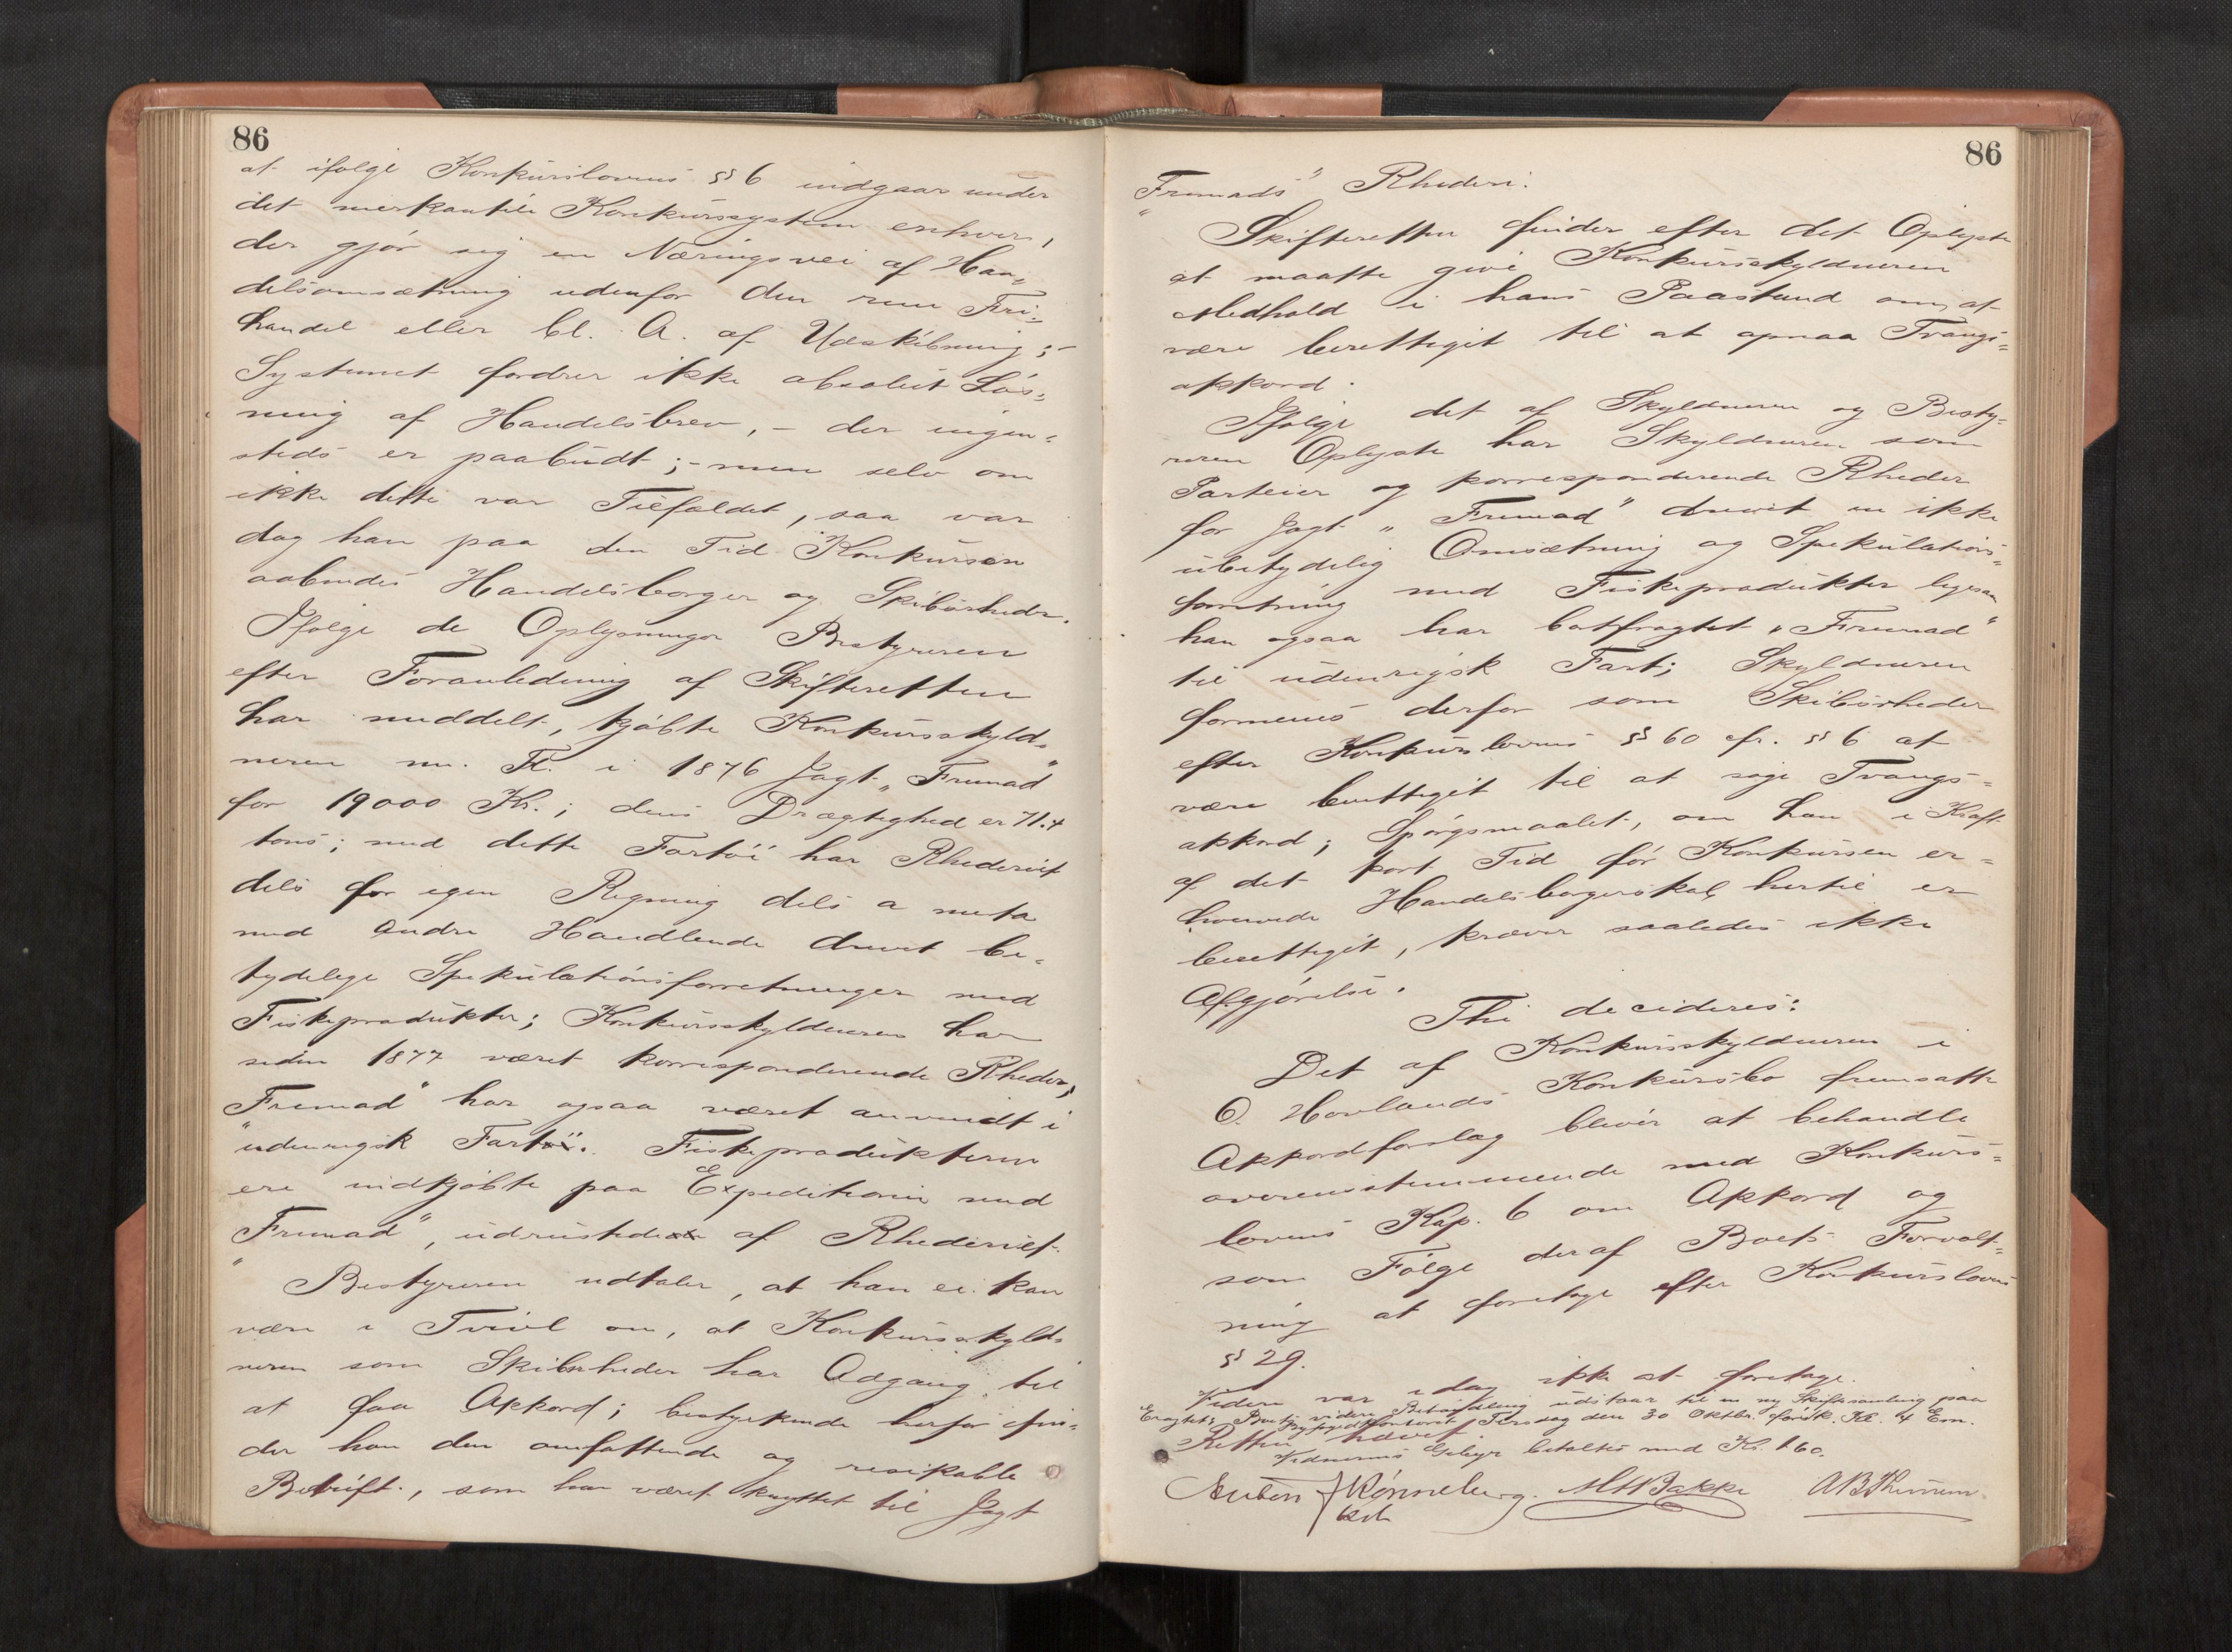 86
at ifølge Konkurslovens § 6 indgaar under
det merkantile Konkurssystem enhver,
der gjør sig en Næringsvei af Han„
delsomsætning udenfor den rene Fri=
handel eller bl. A. af Udskibning; -
Systemet fordrer ikke absolut Løs=
ning af Handelsbrev, - der ingen=
steds er paabudt; - men selv om
ikke dette var Tilfældet, saa var
dog han paa den Tid Konkursen
aabnedes Handelsborger og Skibsrheder.
Ifølge de Oplysninger Bestyreren
efter Foranledning af Skifteretten
har meddelt, kjøbte Konkursskyld„
neren m. Fl. i 1876 Jagt „Fremad"
for 19000 Kr.; dens Drægtighed er 71.4
tons; med dette Fartøi har Rhederiet
dels for egen Regning dels a meta
med andre Handlende drevet be„
tydelige Spekulationsforretninger med
Fiskeprodukter; Konkursskyldneren har
siden 1877 været korresponderende Rheder;
„Fremad" har ogsaa været anvendt i
udenrigsk Fart. Fiskeprodukterne
ere indkjøbte paa Expeditioner med
„Fremad", udrustede af Rhederiet.
Bestyreren udtaler, at han ei kan
være i Tvivl om, at Konkursskyld„
neren som Skibsrheder har Adgang til
at faa Akkord; bestyrkende herfor fin=
der han den omfattende og resikable
Bedrift, som har været knyttet til Jagt
86
„Fremads" Rhederi.
Skifteretten finder efter det Oplyste
at maatte give Konkursskyldneren
Medhold i hans Paastand om, at
være berettiget til at opnaa Tvangs=
akkord.
Ifølge det af Skyldneren og Besty=
reren Oplyste har Skyldneren som
Parteier og korresponderende Rheder
for Jagt „Fremad" drevet en ikke
ubetydelig Omsætning og Spekulations=
forretning med Fiskeprodukter ligesom
han ogsaa har bortfragtet „Fremad"
til udenrigsk Fart; Skyldneren
formenes derfor som Skibsrheder
efter Konkurslovens § 60 cfr. § 6 at
være berettiget til at søge Tvangs=
akkord; Spørgsmaalet, om han i Kraft
af det kort Tid før Konkursen er=
hvervede Handelsborgerskab hertil er
berettiget, kræver saaledes ikke
Afgjørelse.
Thi decideres:
Det af Konkursskyldneren i
O. Hovlands Konkursbo fremsatte
Akkordforslag bliver at behandle
overensstemmende med Konkurs=
lovens Kap. 6 om Akkord og
som Følge deraf Boets Forvalt=
ning at foretage efter Konkurslovens
§ 29.
Videre var idag ikke at foretage.
Eragtet: Boets videre Behandling udstaar til en ny Skiftesamling paa
Byfogedkontoret Tirsdag den 30 Oktbr. førstk. Kl. 4 Em.
Retten hævet
Vidnernes Gebyr betaltes med Kr. 1.60.
Rønneberg. M N Bakke